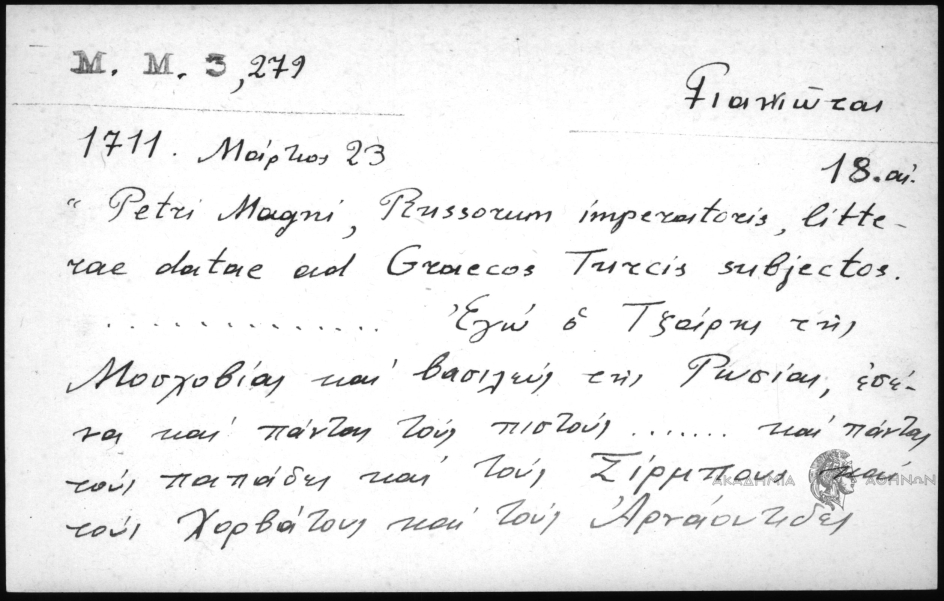 M. M. 3,279
Γιαννιῶται
1711. Μάρτιος 23
18. αἰ.
"Petri Magni, Russorum imperatoris, litte-
rae datae ad Graecos Turcis subjectos.
.............. Ἐγώ ὁ Τζάρης τῆς
Μοσχοβίας καί βασιλεύς τῆς Ρωσίας, ἐσέ-
να καί πάντας τούς πιστούς ....... καί πάντας
τούς παπάδες καί τούς Σίρμπους καί
τούς Χορβάτους καί τούς Ἀρναούτιδες
ΑΚΑΔΗΜΙΑ ΑΘΗΝΩΝ